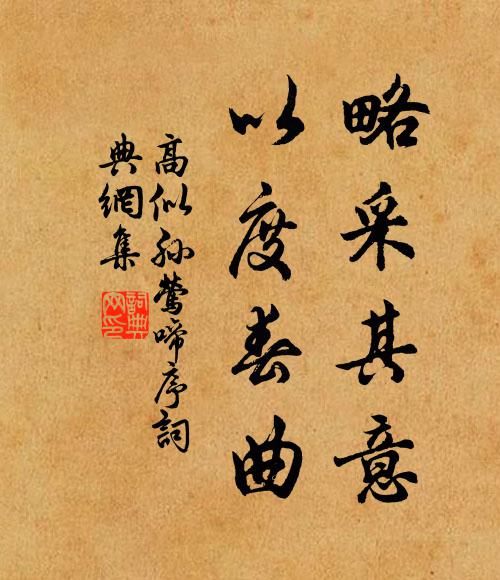 略采其意
以度春曲
高似孙莺啼序词
典網集
詞典
网印